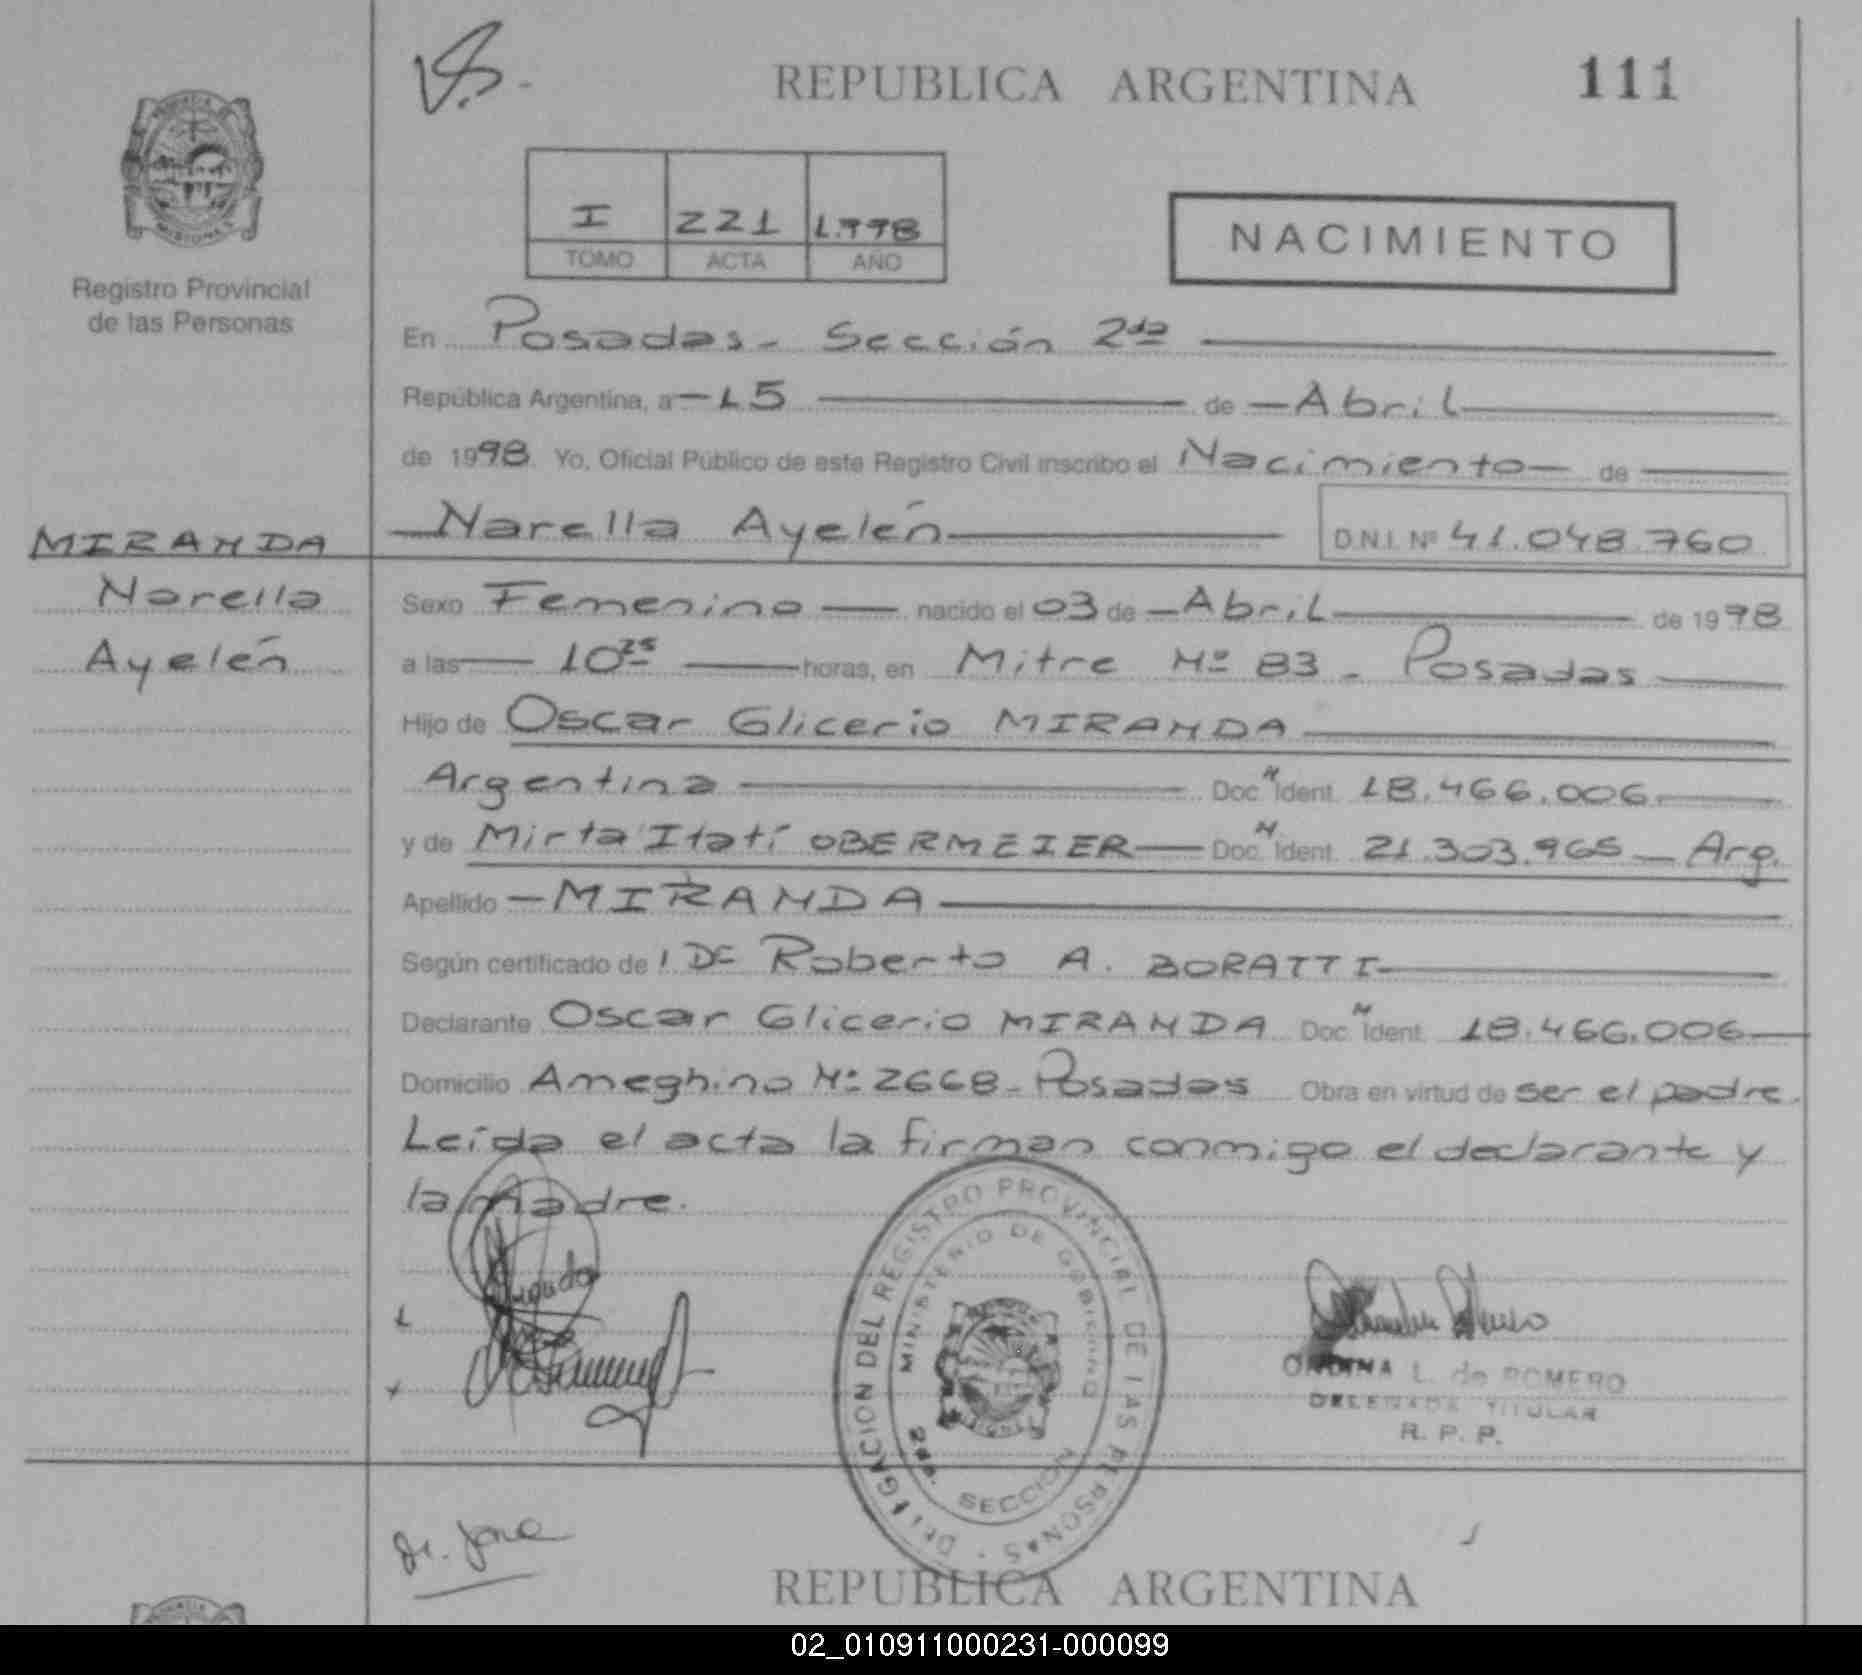 REPUBLICA ARGENTINA
111
MISIONES
Registro Provincial
de las Personas
I 221 1.998
TOMO ACTA AÑO
NACIMIENTO
En Posadas - Sección 2da
República Argentina, a 15 de Abril
de 1998. Yo, Oficial Público de este Registro Civil inscribo el Nacimiento de
Narella Ayelén D.N.I. Nº 41.048.760
MIRANDA
Narella
Ayelén
Sexo Femenino nacido el 03 de Abril de 1998
a las 10 25 horas, en Mitre Nº 83 - Posadas
Hijo de Oscar Glicerio MIRANDA
Argentina Doc. N Ident. 18.466.006
y de Mirta Itatí OBERMEIER Doc. N Ident. 21.303.965 - Arg.
Apellido MIRANDA
Según certificado de Dr Roberto A. BORATTI
Declarante Oscar Glicerio MIRANDA Doc. N Ident. 18.466.006
Domicilio Ameghino Nº 2668 - Posadas Obra en virtud de ser el padre.
Leída el acta la firman conmigo el declarante y
la madre.
DELEGACION DEL REGISTRO PROVINCIAL DE LAS PERSONAS
MINISTERIO DE GOBIERNO
2da. SECCION
ONDINA L. de ROMERO
DELEGADA TITULAR
R. P. P.
REPUBLICA ARGENTINA
02_010911000231-000099